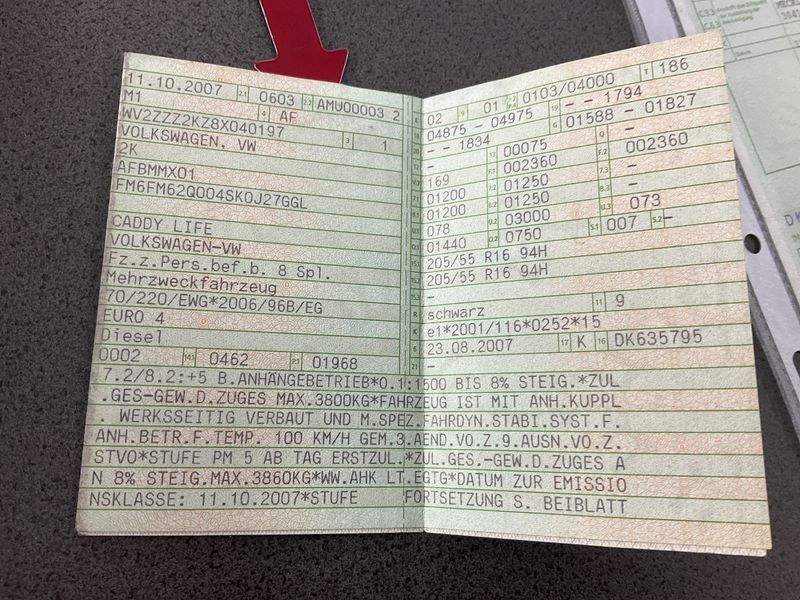 11.10.2007 2.1 0603 2.2 AMU00003 2
M1 4 AF
WV2ZZZ2KZ8X040197 3 1
VOLKSWAGEN, VW
2K
AFBMMX01
FM6FM62Q004SK0J27GGL
CADDY LIFE
VOLKSWAGEN-VW
Fz.z.Pers.bef.b. 8 Spl.
Mehrzweckfahrzeug
70/220/EWG*2006/96B/EG
EURO 4
Diesel
0002 14.1 0462 P.1 01968
L 02 9 01 0103/04000 T 186
18 04875 - 04975 19 - - 1794
20 - - 1834 G 01588 - 01827
13 00075 Q -
V.7 169 F.1 002360 F.2 002360
01200 7.2 01250 7.3 -
01200 8.2 01250 8.3 -
078 U.2 03000 U.3 073
01440 O.2 0750 S.1 007 S.2 -
205/55 R16 94H
205/55 R16 94H
-
R schwarz 11 9
K e1*2001/116*0252*15
6 23.08.2007 17 K 16 DK635795
21 -
7.2/8.2:+5 B.ANHÄNGEBETRIEB*0.1:1500 BIS 8% STEIG.*ZUL
.GES-GEW.D.ZUGES MAX.3800KG*FAHRZEUG IST MIT ANH.KUPPL
. WERKSSEITIG VERBAUT UND M.SPEZ.FAHRDYN.STABI.SYST.F.
ANH.BETR.F.TEMP. 100 KM/H GEM.3.AEND.VO.Z.9.AUSN.VO.Z.
STVO*STUFE PM 5 AB TAG ERSTZUL.*ZUL.GES.-GEW.D.ZUGES A
N 8% STEIG.MAX.3860KG*WW.AHK LT.EGTG*DATUM ZUR EMISSIO
NSKLASSE: 11.10.2007*STUFE FORTSETZUNG S. BEIBLATT